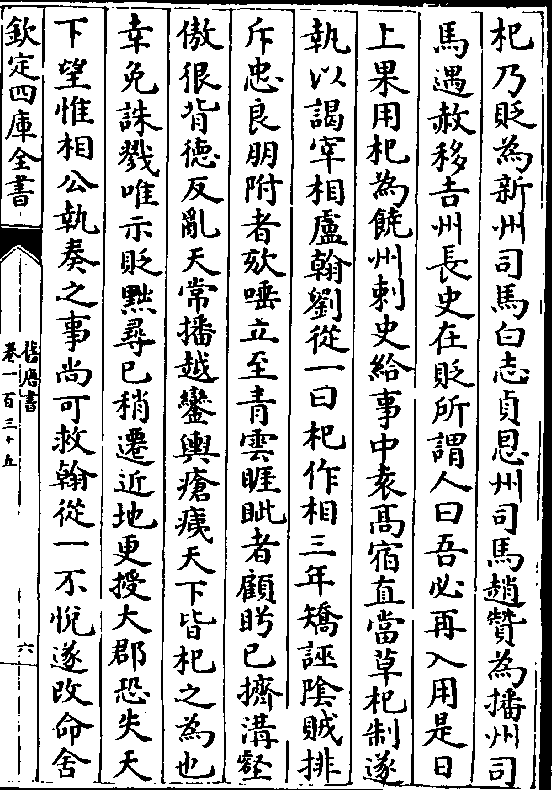 杞乃貶為新州司馬白志貞恩州司馬趙贊為播州司
馬遇赦移吉州長史在貶所謂人曰吾必再入用是日
上果用杞為饒州刺史給事中袁高宿直當草杞制遂
執以謁宰相盧翰劉從一曰杞作相三年矯誣陰賊排
斥忠良朋附者欬唾立至青雲睚眦者顧眄已擠溝壑
傲很背德反亂天常播越鑾輿瘡痍天下皆杞之為也
幸免誅戮唯示貶黜尋已稍遷近地更授大郡恐失天
下望惟相公執奏之事尚可救翰從一不悅遂改命舍
欽定四庫全書
舊唐書
卷一百三十五
六